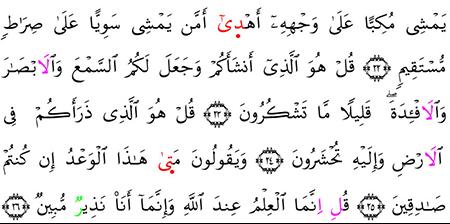 يَمْشِى مُكِبًّا عَلَىٰ وَجْهِهِۦٓ أَهْدِىٰٓ أَمَّن يَمْشِى سَوِيًّا عَلَىٰ صِرَٰطٍ
مُّسْتَقِيمٍ ﴿٢٢﴾ قُلْ هُوَ ٱلَّذِىٓ أَنشَأَكُمْ وَجَعَلَ لَكُمُ ٱلسَّمْعَ وَٱلَابْصَٰرَ
وَٱلَافْـِٔدَةَۖ قَلِيلًا مَّا تَشْكُرُونَ ﴿٢٣﴾ قُلْ هُوَ ٱلَّذِى ذَرَأَكُمْ فِى
ٱلَارْضِ وَإِلَيْهِ تُحْشَرُونَ ﴿٢٤﴾ وَيَقُولُونَ مَتِىٰ هَٰذَا ٱلْوَعْدُ إِن كُنتُمْ
صَٰدِقِينَ ﴿٢٥﴾ قُلِ اِنَّمَا ٱلْعِلْمُ عِندَ ٱللَّهِ وَإِنَّمَآ أَنَا۠ نَذِيرٌ مُّبِينٌ ﴿٢٦﴾